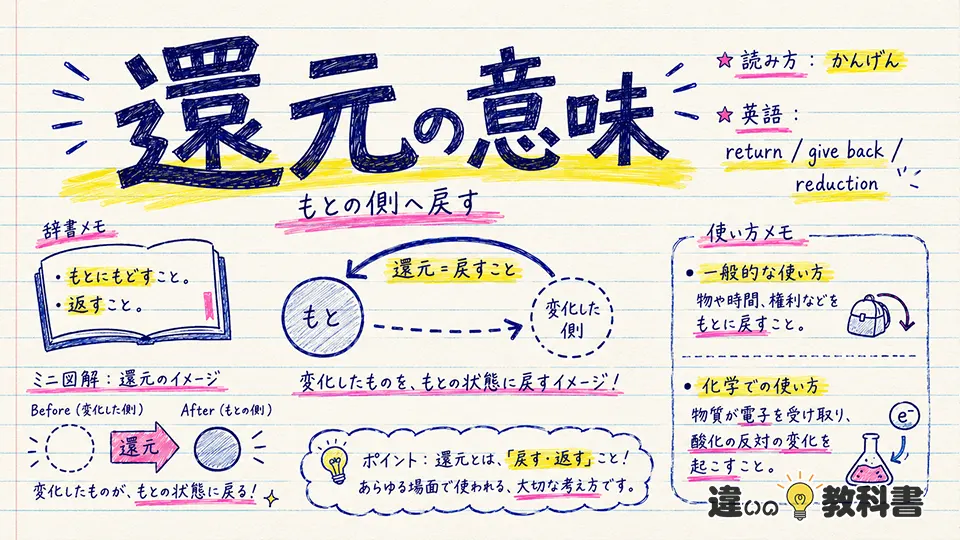 還元の意味
もとの側へ戻す
★読み方：かんげん
★英語：
return / give back /
reduction
辞書メモ
・もとにもどすこと。
・返すこと。
還元＝戻すこと
もと
変化した
側
変化したものを、もとの状態に戻すイメージ！
ミニ図解：還元のイメージ
Before（変化した側）
After（もとの側）
還元
変化したものが、もとの状態に戻る！
ポイント：還元とは、「戻す・返す」こと！
あらゆる場面で使われる、大切な考え方です。
使い方メモ
●一般的な使い方
物や時間、権利などを
もとに戻すこと。
●化学での使い方
物質が電子を受け取り、
酸化の反対の変化を
起こすこと。
e⁻
違いの教科書